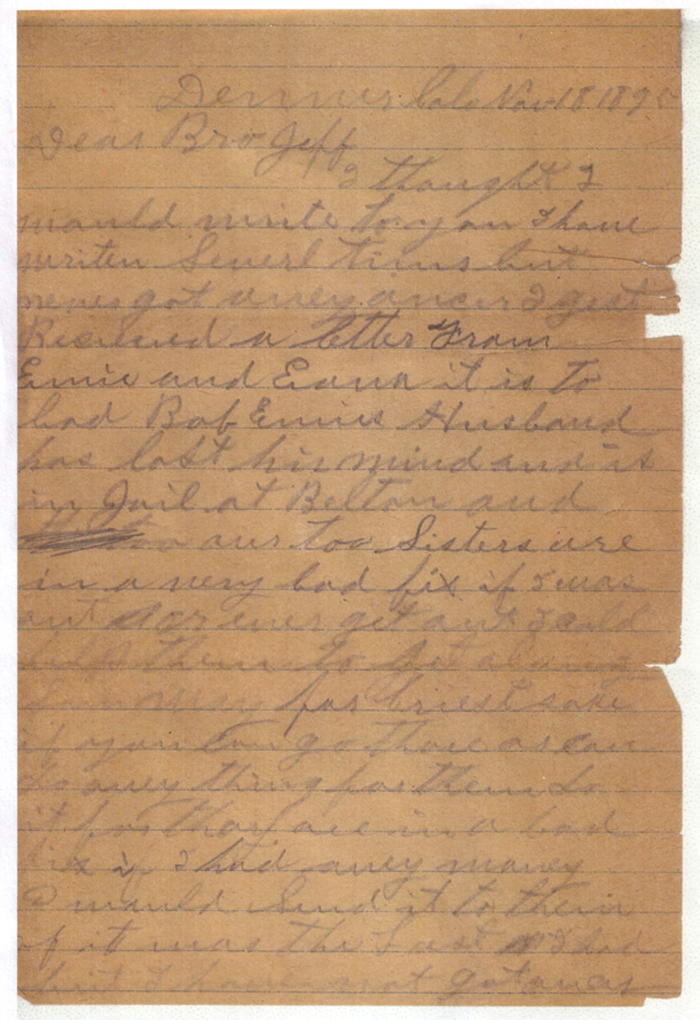 Denver Colo Nov 18 189
Dear Bro Jeff
I thought I
would write to you I have
writen Severl tims but
never got aney ancer I gest
Recieved a letter From
Emie and Edna it is to
bad Bob Emies Husband
has lost his mind and is
in Jail at Belton and
our too Sisters are
in a very bad fix if I was
out or ever get out I cold
help them to get along
Som way for Criest sake
if you Can go thare or can
do aney thing for them do
it for thay are in a bad
fix if I had aney money
I would Send it to them
if it was the Last I had
but I have not got